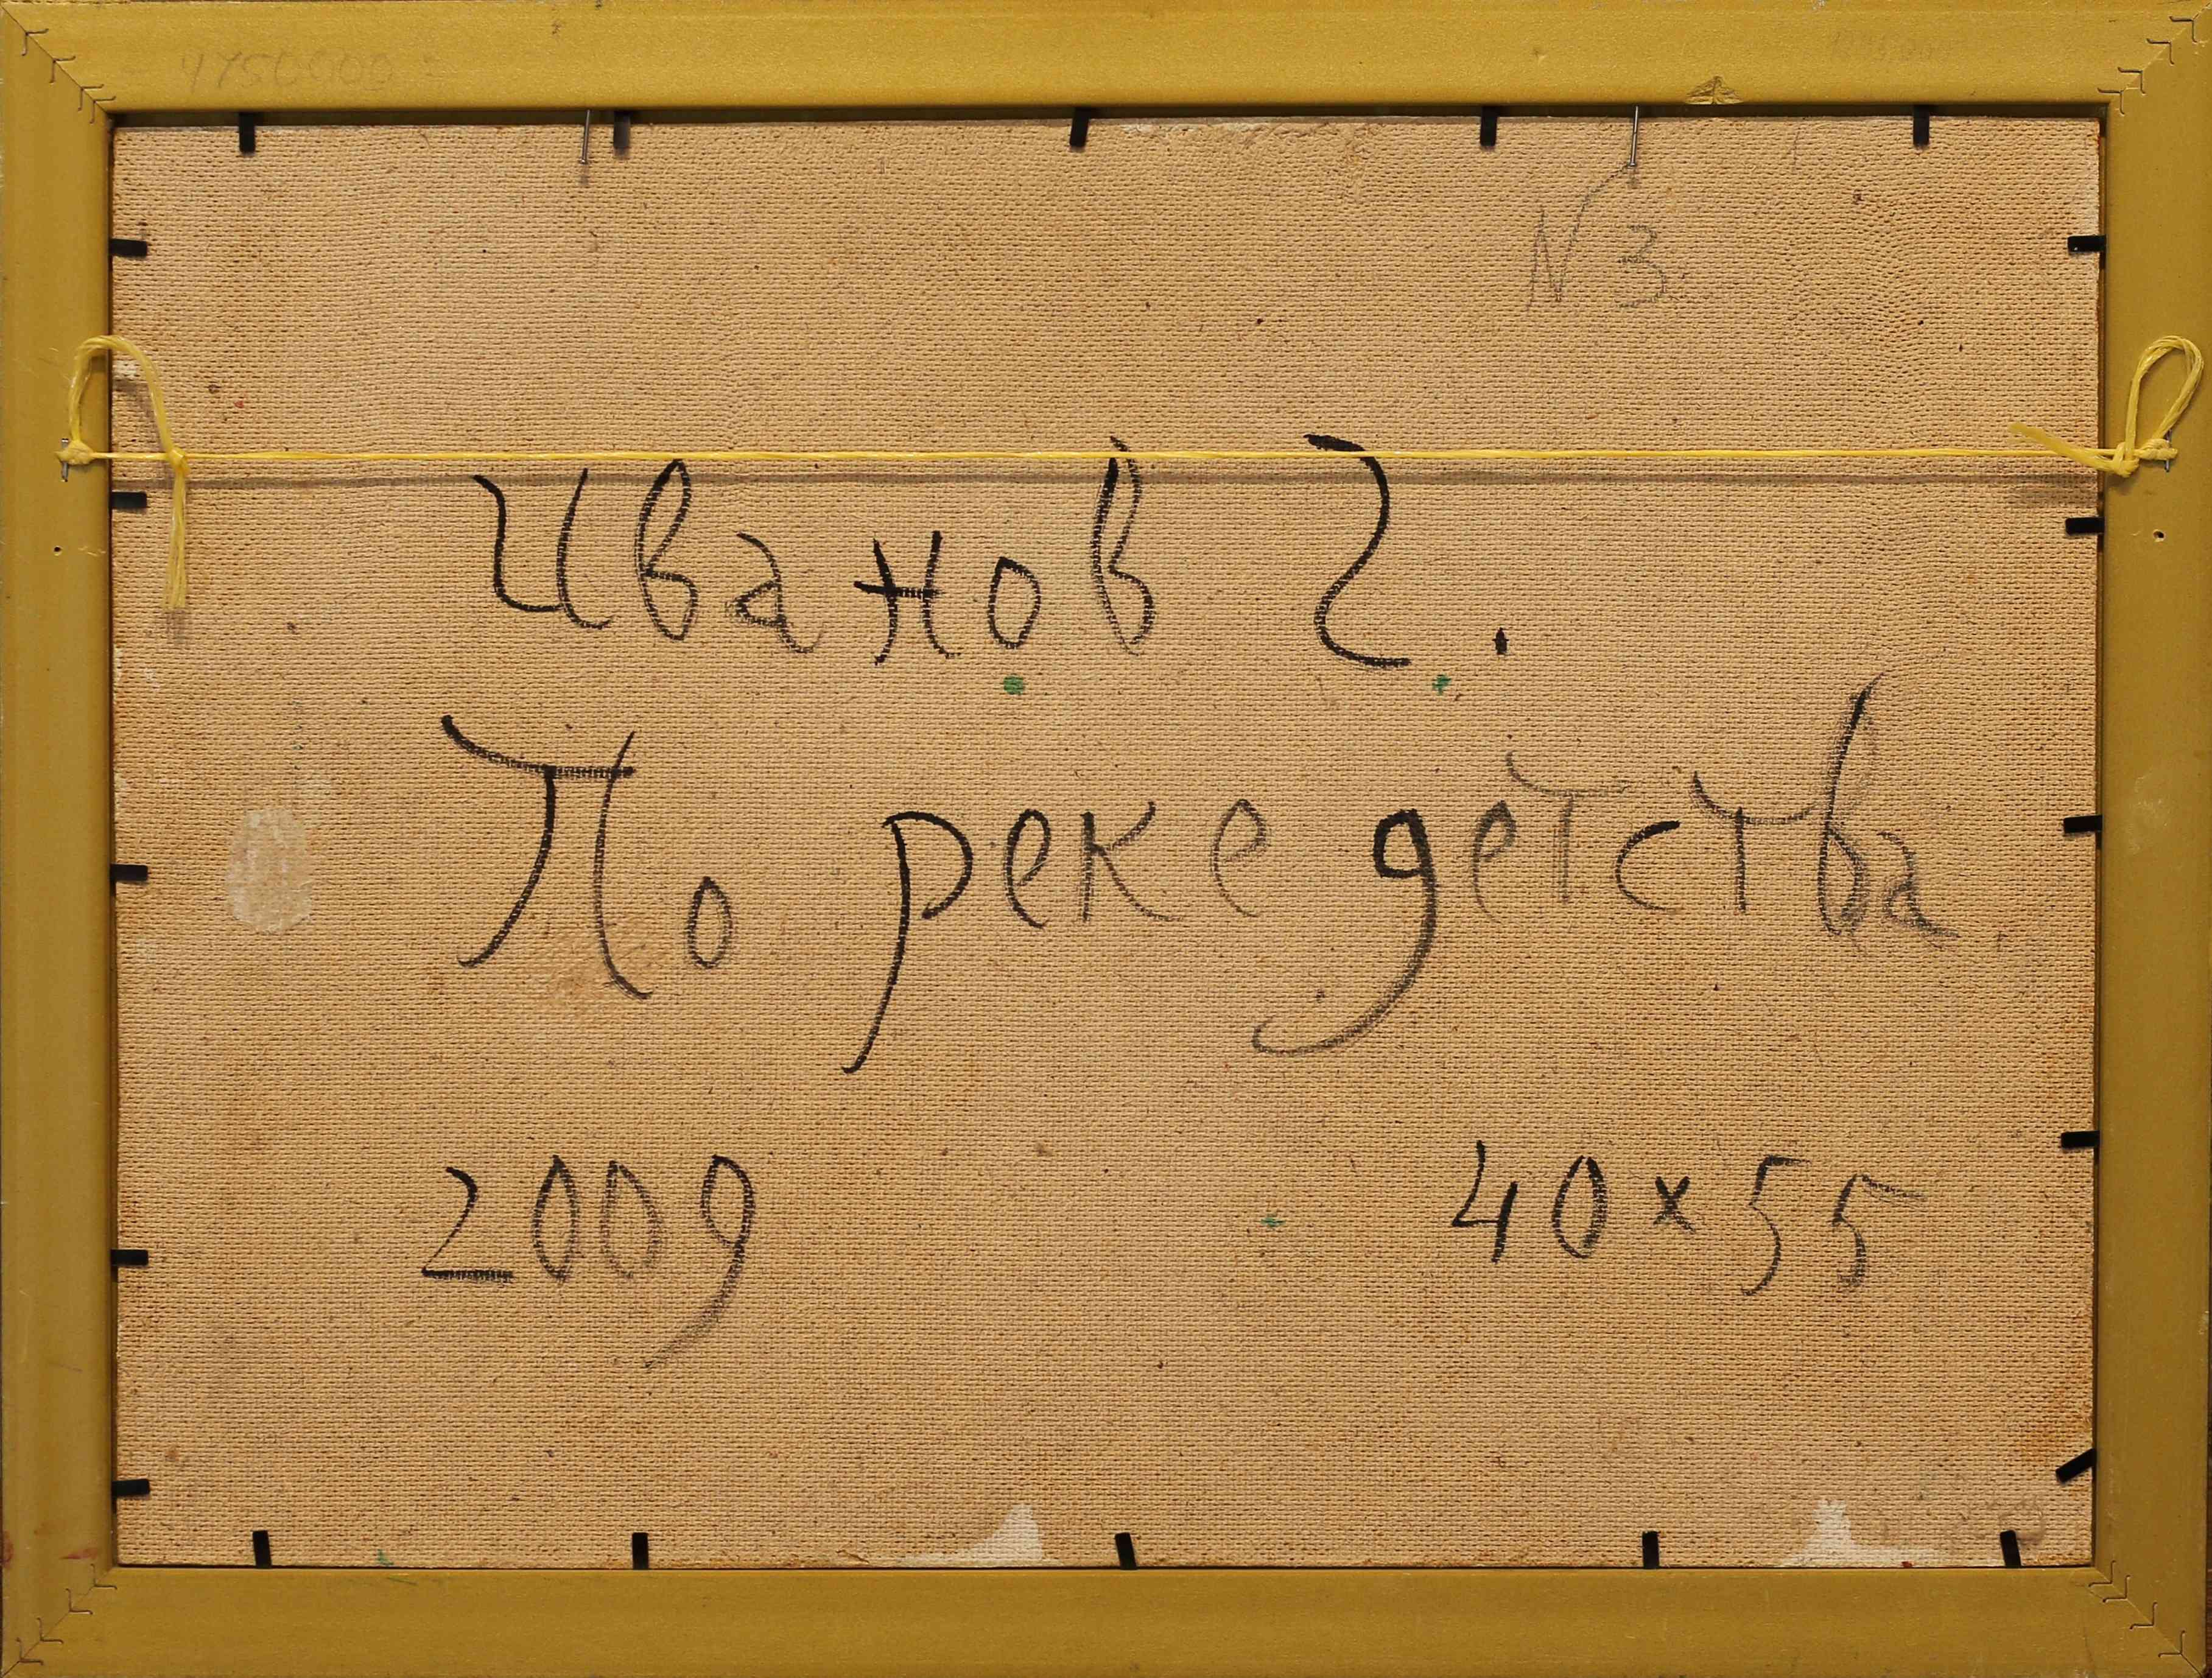 4750000
N 3
Иванов Г.
По реке детства
2009 40×55